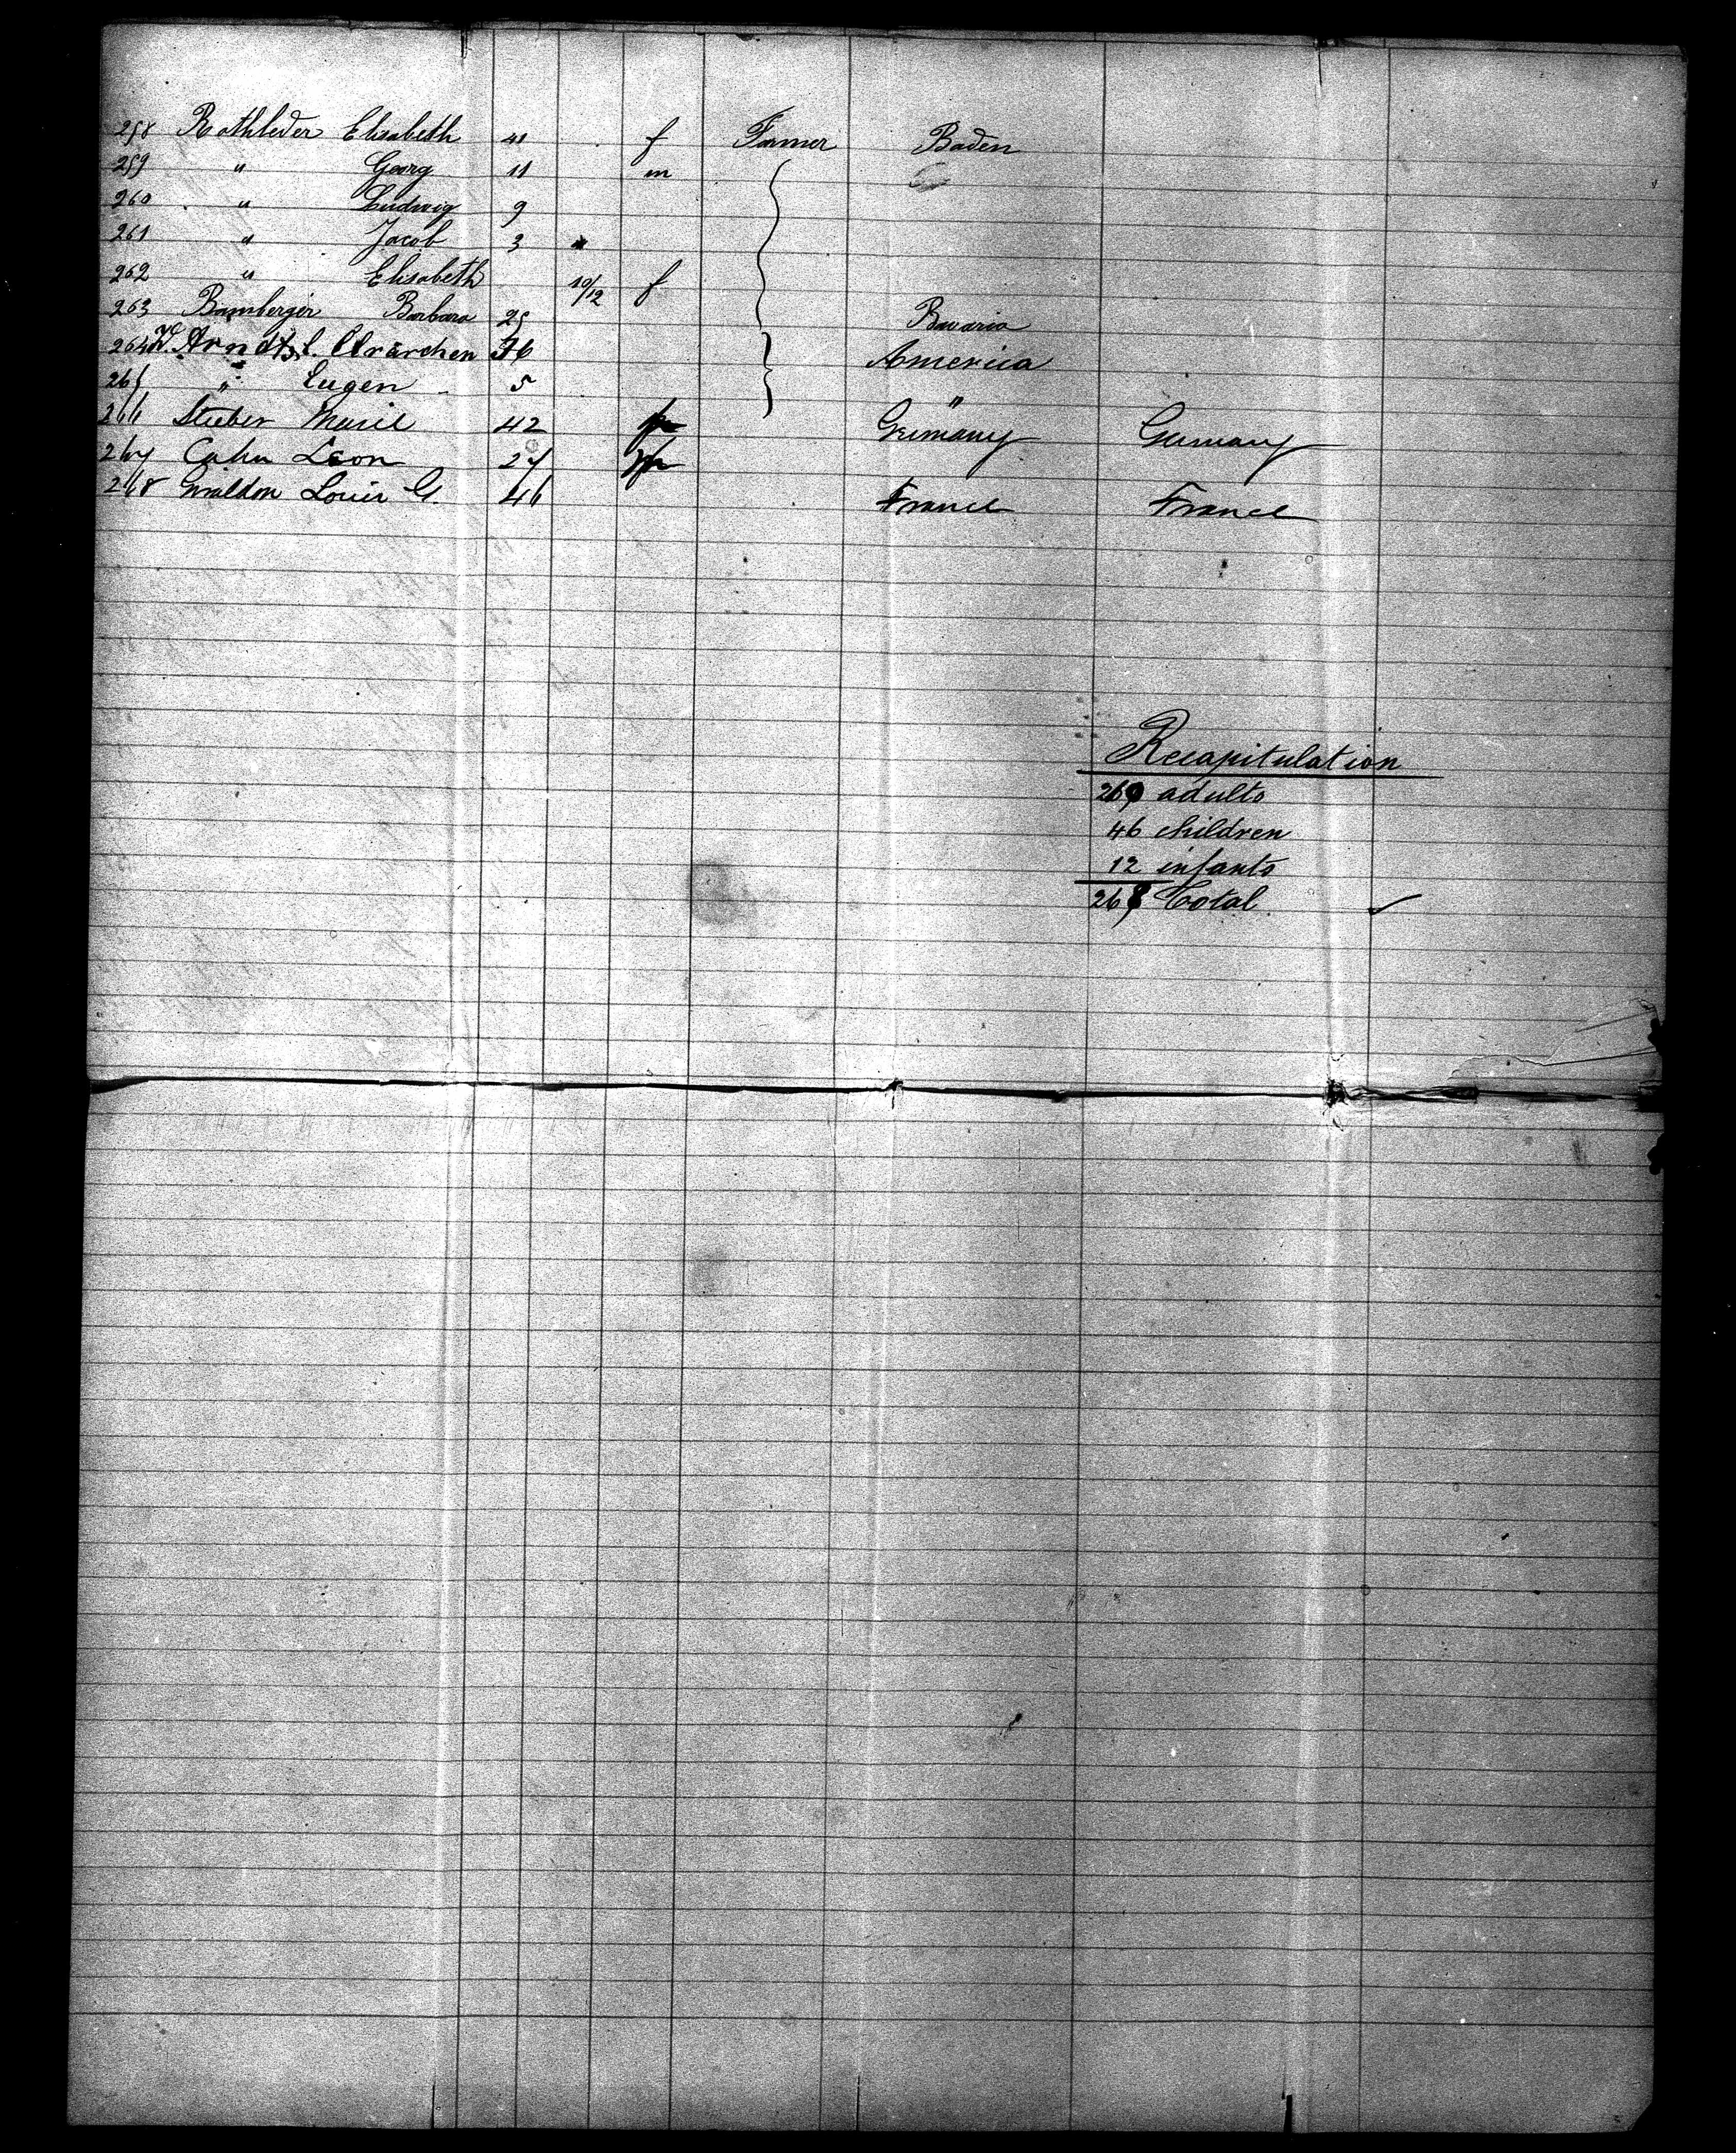 258 Rothleder Elisabeth 41 f Farmer Baden
259 " Georg 11 m
260 " Ludwig 9
261 " Jacob 3
262 " Elisabeth 10/12 f
263 Bamberger Barbara 25 Bavaria
264 Arndts 36 America
265 " Eugen 5 "
266 Stieber Marie 42 Germany Germany
267 Cahn Leon 27
268 Louis G. 46 France France
Recapitulation
adults
46 children
12 infants
268 Total